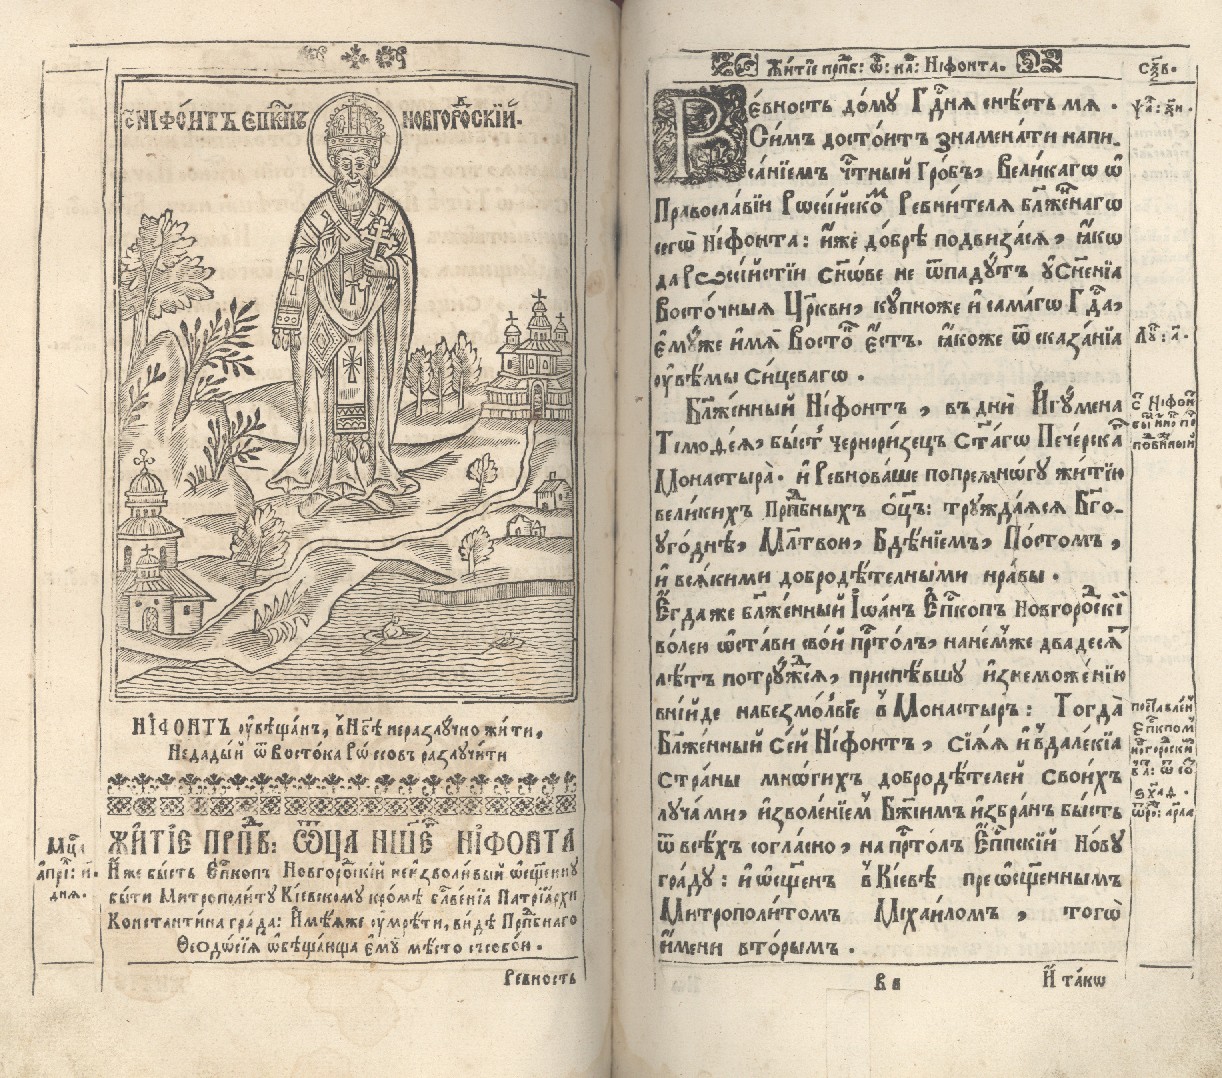 С: НІФО́НТЪ ЕП҃КПЪ НОВГОРОⷣСКІЙ.
НІ́ФОНТЪ ᲂу҆вѣщанъ, в̾ Нб҃ѣ неразлꙋ́чно жи́ти,
Недады́й ѿ Восто́ка Рѡ́ссовъ разлꙋчи́ти
ЖИТІЕ ПРПⷣБ: ѾЦА НШЕГѠ НІ́ФОНТА
Мцⷭ҇а
а҆прі҇: и҃.
дня.
И҆́же бы́сть Еп҃копъ Новгорⷣо́скій неи҆зво́ливый ѡ҆сщ҃еннꙋ
бы́ти Митрополи́тꙋ Кі́евскомꙋ кромѣ̀ бл҃ве́нїѧ Патрїа́рхи
Константи́на гра́да: И҆мѣ́ѧже ᲂу҆мре́ти, ви́дѣ Прпⷣбнаго
Ѳеодо́сїѧ ѡ҆бѣща́нща є҆мꙋ̀ мѣ́сто съ собо́ю.
Ре́вность
Житїѐ прпⷣб: ѿ: на҃: Ні́фонта.
Ре́вность до́мꙋ Гдⷭ҇нѧ снѣ́сть мѧ.
Ѱа҃: ѯ҃и.
Си́мъ досто́итъ знамена́ти напи-
са́нїемъ чⷭ҇тны́й Гро́бъ, Вели́кагѡ ѡ҆
Правосла́вїи Рѡссі́йскоⷨ Ревни́телѧ бл҃же́ннагѡ
сегѡ̀ Ні́фонта: и҆́же до́брѣ подвиза́сѧ, ꙗ҆́кѡ
да Рѡссі́йстїи сн҃ове не ѿпадꙋ́тъ ᲂу҆сн҃е́нїѧ
Восто́чныѧ Цр҃кви, кꙋ́пноже и҆ самагѡ̀ Гдⷭ҇а,
є҆мꙋ́же и҆́мѧ Восто́къ є҆́сть. ꙗ҆́коже ѿ сказа́нїѧ
Лꙋ҃: а҃.
ᲂу҆вѣ́мы си́цевагѡ.
Бл҃же́нный Ні́фонтъ, въ дни̑ И҆гꙋ́мена
Тімоѳе́ѧ, бы́сть черноризецъ Ст҃агѡ Пече́рскаⷢ
Монастырѧ̀. и҆ Ревнова́ше попремно́гꙋ житїю̀
вели́кихъ Прпⷣбныхъ ѻ҆ц҃ъ: трꙋжда́ѧсѧ Бг҃о-
ᲂуго́днѣ, Мл҃твою, Бдѣ́нїемъ, По́стомъ,
и҆ всѧ́кими добродѣ́телными нра́вы.
Є҆гда́же бл҃же́нный І҆ѡа́нъ Еп҃копъ Новгоро́дскї
во́лею ѡ҆ста́ви сво́й прⷭ҇то́лъ, нане́мже двадесѧⷮ
лѣ́тъ потрꙋ́жⷣсѧ, приспѣ́вшꙋ и҆знеможе́нїю
вни́йде набезмо́лвїе в̾ Монасты́рь: Тогда̀
Бл҃же́нный Се́й Ні́фонтъ, сїѧ́ѧ и҆ в̾ дале́кїѧ
страны̀ мно́гихъ добродѣ́телей свои́хъ
лꙋча́ми, и҆зволе́нїем̾ Бж҃їимъ и҆збра́нъ бы́сть
ѿ всѣ́хъ согла́сно, на прⷭ҇то́лъ Еп҃пскїй Но́вꙋ
гра́дꙋ: и҆ ѡ҆сщ҃е́нъ в̾ Кі́евѣ преѡсщ҃е́ннымъ
Митрополи́томъ Міхаи́ломъ, тогѡ̀
и҆́мени вторы́мъ.
В в
И҆ та́кѡ